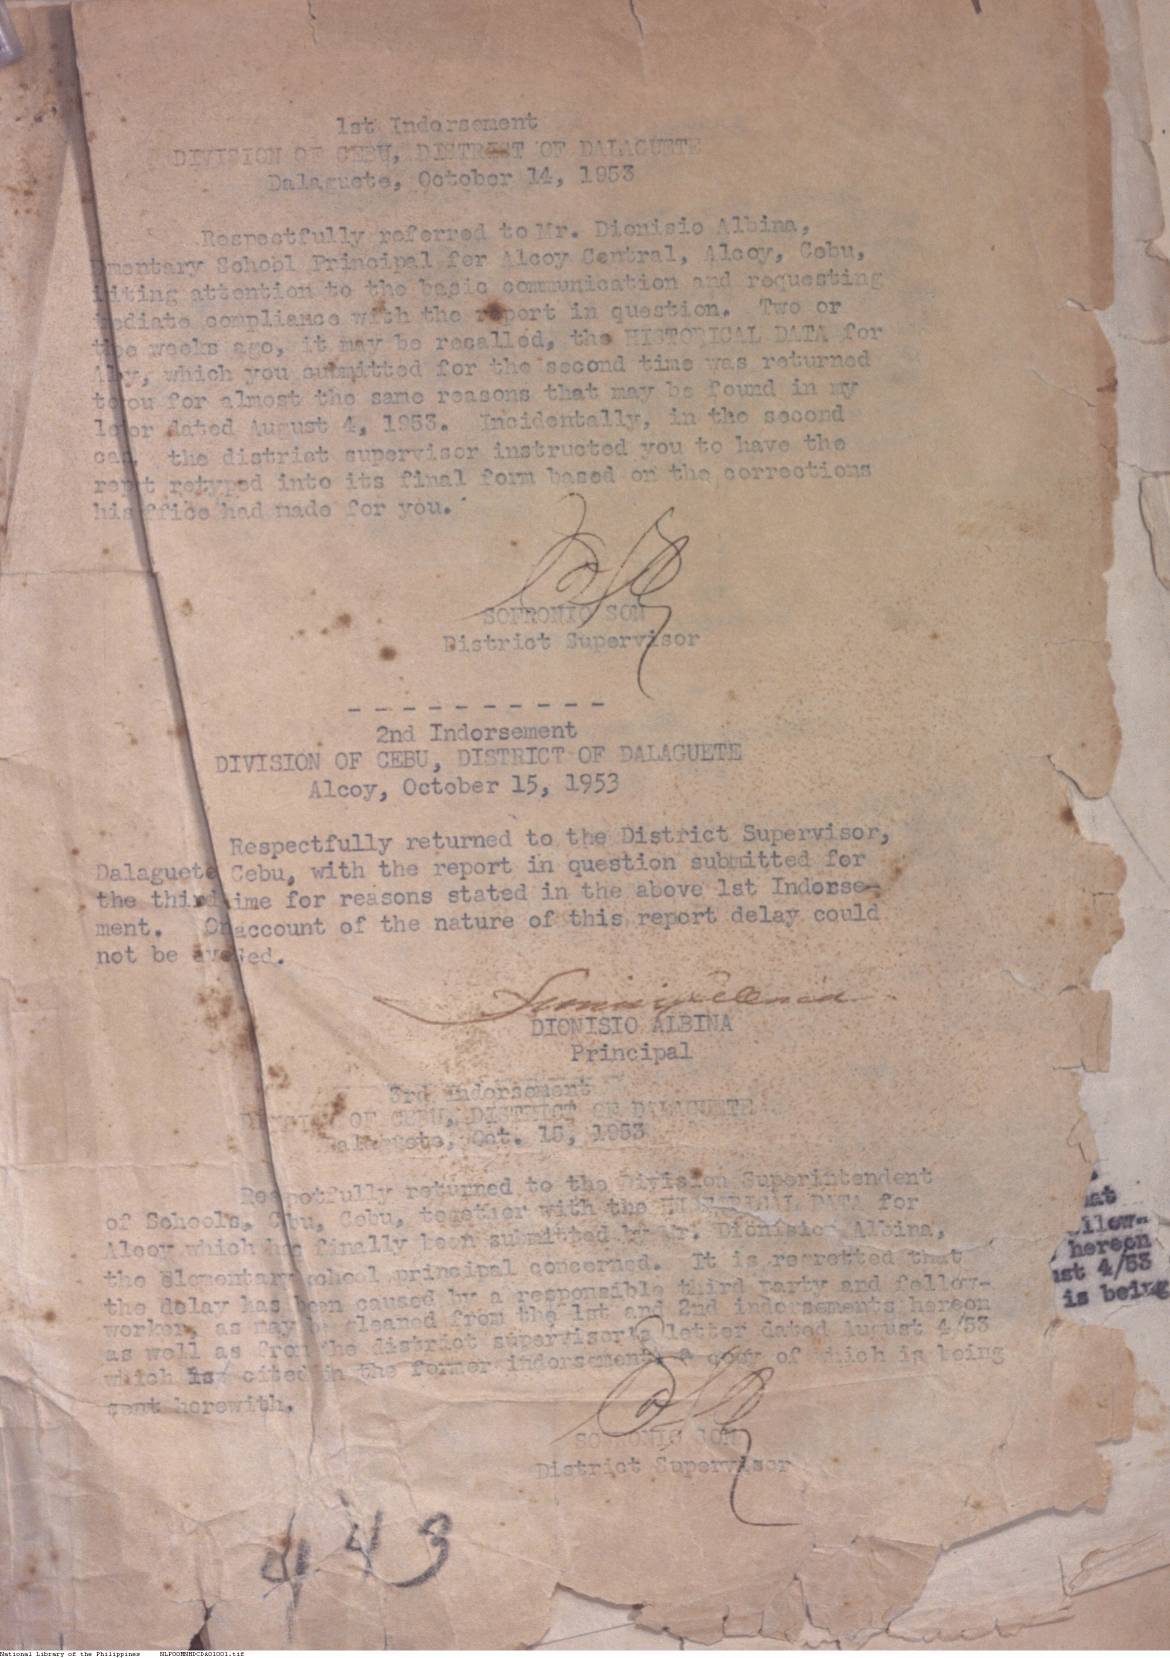 1st Indorsement
DIVISION OF CEBU, DISTRICT OF DALAGUETE
Dalaguete, October 14, 1953
Respectfully referred to Mr. Dionisio Albina,
mentary School Principal for Alcoy Central, Alcoy, Cebu,
iting attention to the basic communication and requesting
ediate compliance with the report in question. Two or
weeks ago, it may be recalled, the HISTORICAL DATA for
Al y, which you submitted for the second time was returned
to you for almost the same reasons that may be found in my
le er dated August 4, 1953. Incidentally, in the second
cas the district supervisor instructed you to have the
rep t retyped into its final form based on the corrections
his ffice had made for you.
SOFRONIO SON
District Supervisor
- - - - - - - - - -
2nd Indorsement
DIVISION OF CEBU, DISTRICT OF DALAGUETE
Alcoy, October 15, 1953
Respectfully returned to the District Supervisor,
Dalaguete Cebu, with the report in question submitted for
the third ime for reasons stated in the above 1st Indorse-
ment. On account of the nature of this report delay could
not be av ed.
DIONISIO ALBINA
Principal
3rd Indorsement
DIVISION OF CEBU, DISTRICT OF DALAGUETE
Dalaguete, Oct. 15, 1953
Respectfully returned to the Division Superintendent
of Schools, C bu, Cebu, together with the HISTORICAL DATA for
Alcoy which has finally been submitted by Mr. Dionisio Albina,
the Elementary school principal concerned. It is regretted that
the delay has been caused by a responsible third party and fellow-
worker, as may be gleaned from the 1st and 2nd indorsements hereon
as well as from the district supervisor's letter dated August 4/53
which is cited in the former indorsement, a copy of which is being
sent herewith.
SOFRONIO SON
District Supervisor
at
llow-
hereon
ust 4/53
is being
443
National Library of the Philippines NLPOOMNHDCDA01001.tif